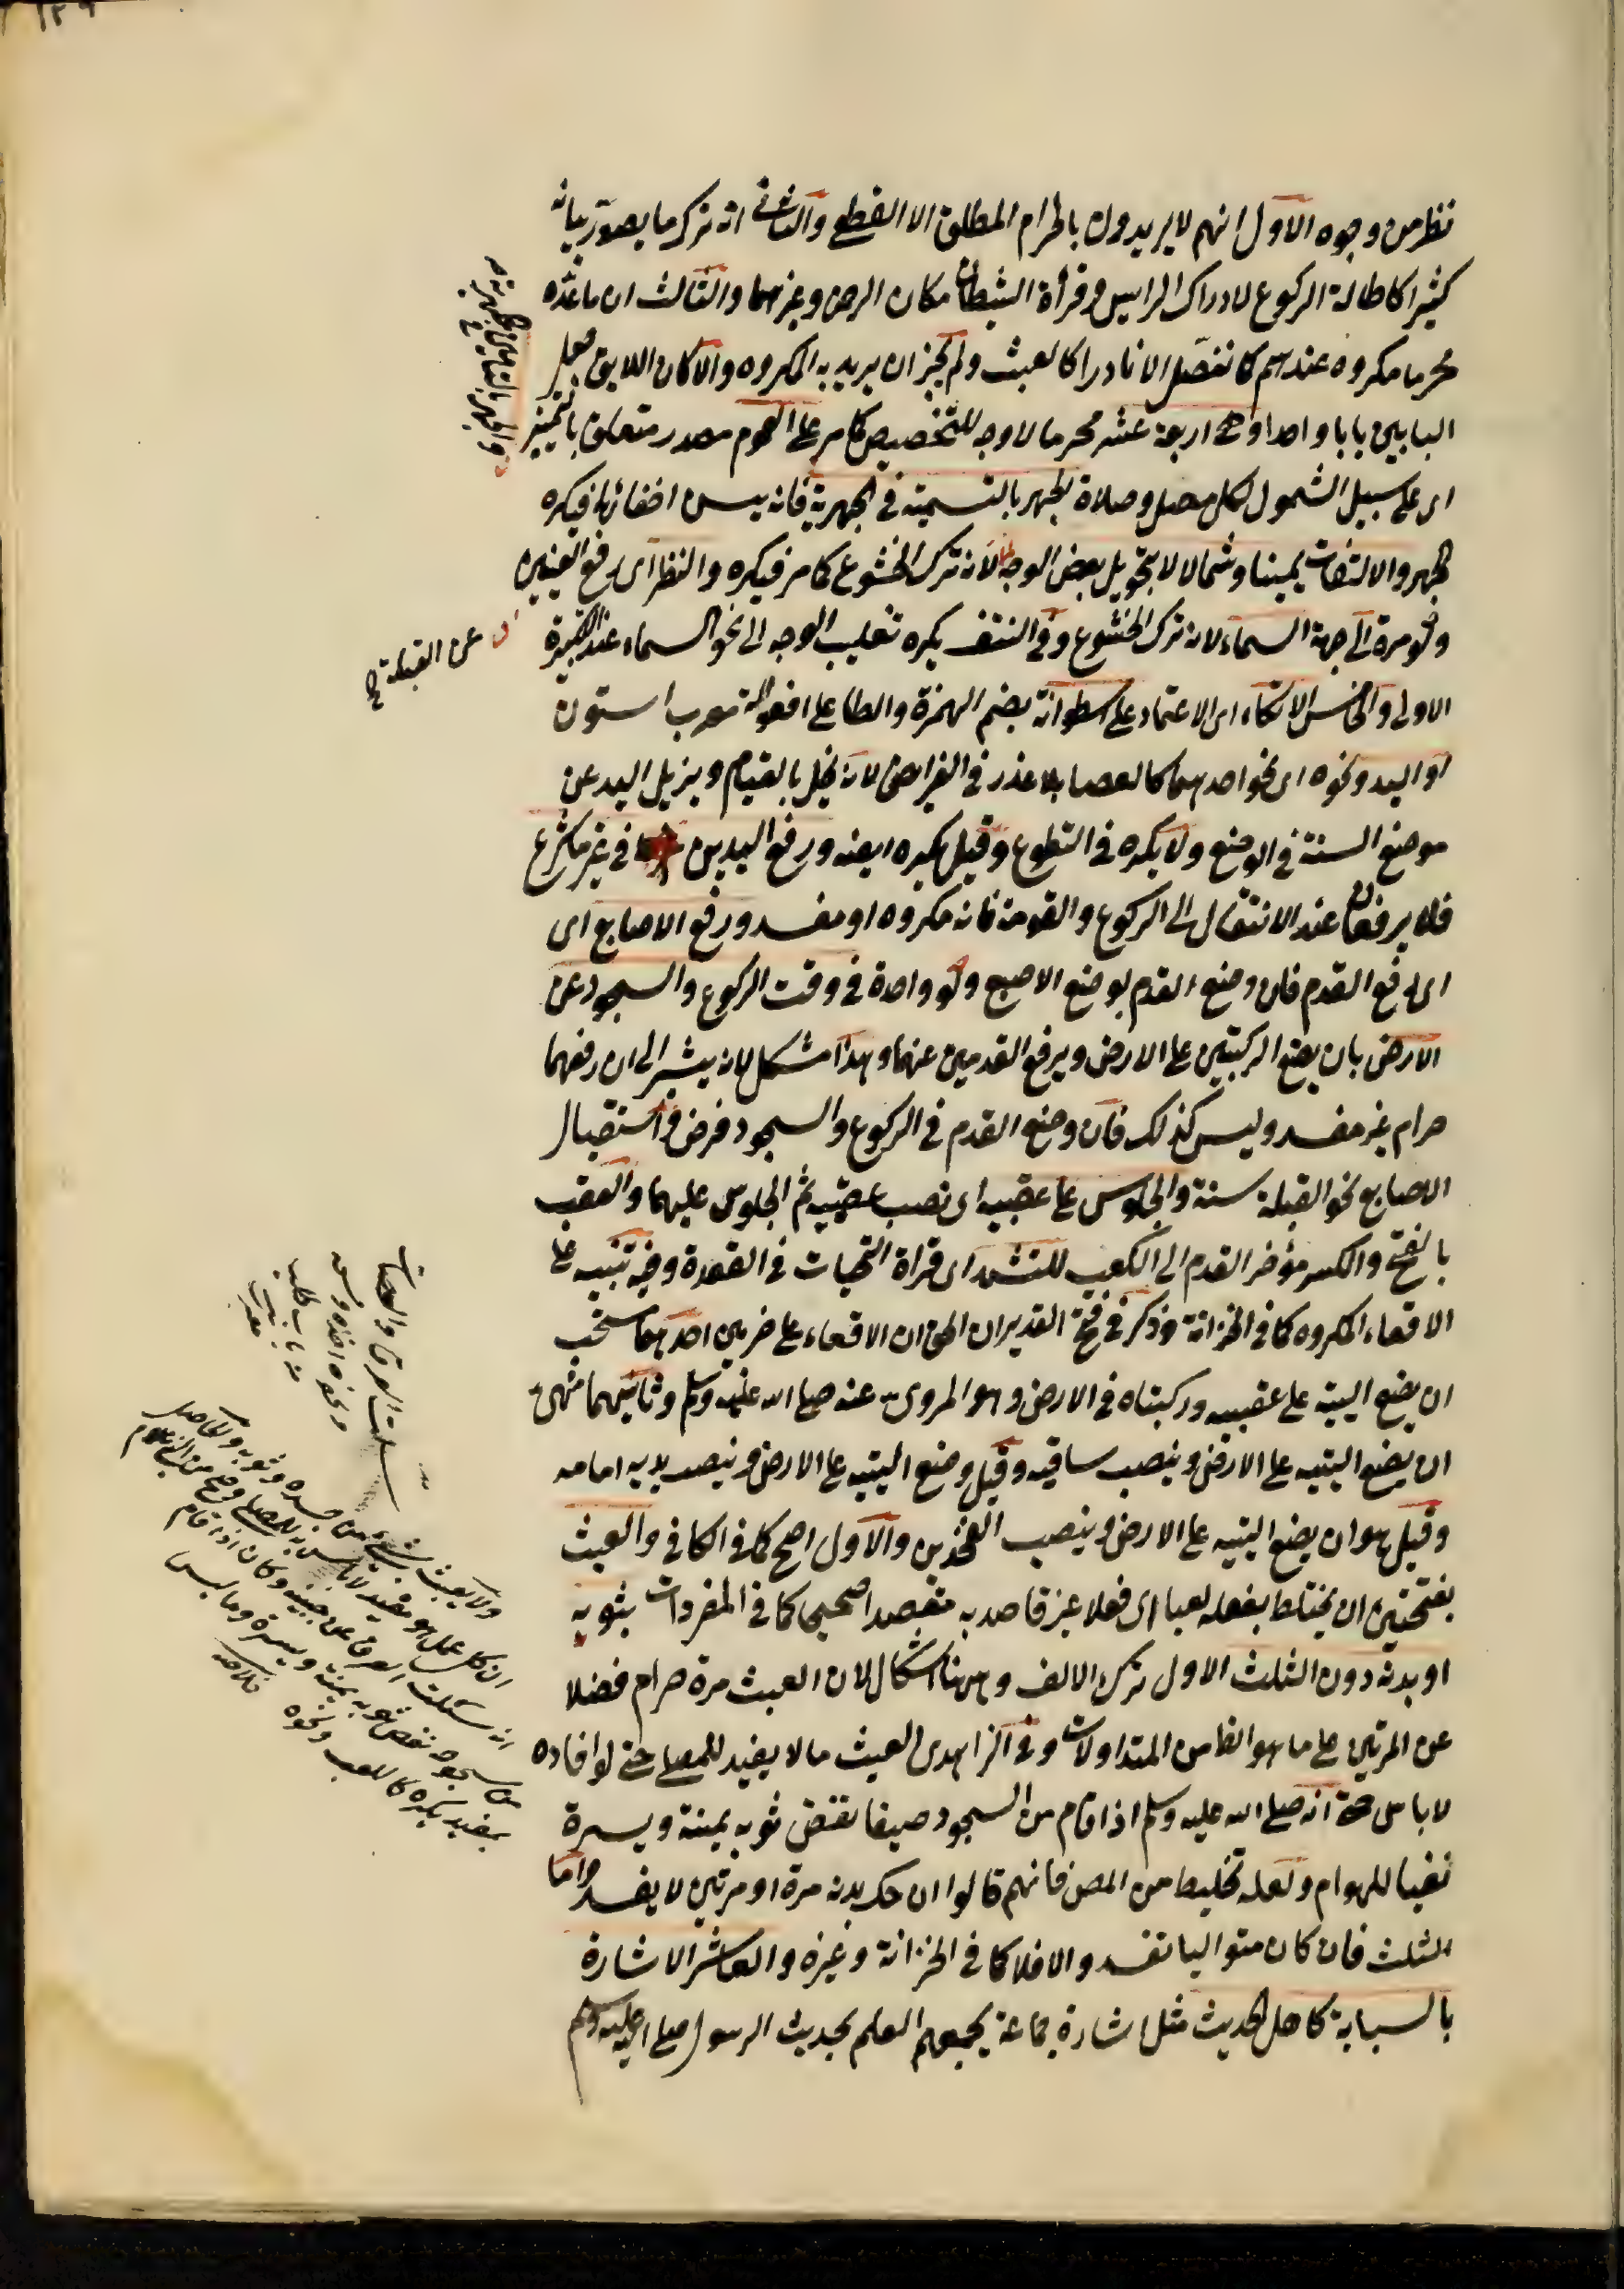 نظر من وجوه الاول انهم لا يريدون بالحرام المطلق الا القطعي والثاني انه ترك ما يصور بيانه
كثيرا كاطالة الركوع لادراك الرايس وقراة الشيطان مكان الرحمن وغيرهما والثالث ان ما عده
محرما مكروه عندهم كما نفصل الا نادرا كالعبث ولم يجز ان يريد به المكروه والا كان اللايق جعل
البابين بابا واحدا وهي اربعة عشر محرما لا وجه للتخصيص كما مر على العموم مصدر متعلق بالتمييز
اى على سبيل الشمول لكل مصل وصلاة الجهر بالتسمية في الجهرية فانه يسن اخفاؤها فيكره
الجهر والالتفات يمينا وشمالا لا بتحويل بعض الوجه لانه ترك الخشوع كما مر فيكره والنظر اى رفع العينين
ولو مرة الى جهة السماء لانه ترك الخشوع وفي النتف يكره تقليب الوجه الى نحو السماء عند التكبيرة
الاولى والخامس الاتكاء اى الاعتماد على اسطوانة بضم الهمزة والطا على افعوالة معرب استون
او اليد ونحوه اى نحو احدهما كالعصا بلا عذر في الفرايض لانه يخل بالقيام ويزيل اليد عن
موضع السنة في الوضع ولا يكره في التطوع وقيل يكره ايضه ورفع اليدين في غير ما شرع
فلا يرفعان عند الانتقال الى الركوع والقومة فانه مكروه او مفسد ورفع الاصابع اى
اى رفع القدم فان وضع القدم بوضع الاصبع ولو واحدة في وقت الركوع والسجود عن
الارض بان يضع الركبتين على الارض ويرفع القدمين عنها وهذا مشكل لانه يشير الى ان رفعهما
حرام غير مفسد وليس كذلك فان وضع القدم في الركوع والسجود فرض واستقبال
الاصابع نحو القبلة سنة والجلوس على عقبيه اى نصب عقبيه ثم الجلوس عليهما والعقب
بالفتح والكسر مؤخر القدم الى الكعب للتشهد اى قراة التحيات في القعدة وفيه تنبيه على
الاقعاء المكروه كما في الخزانة وذكر في فتح القدير ان الحق ان الاقعاء على ضربين احدهما مستحب
ان يضع اليتيه على عقبيه وركبتاه في الارض وهو المروى عنه صلى الله عليه وسلم وثانيهما منهى
ان يضع اليتيه على الارض وينصب ساقيه وقيل وضع اليتيه على الارض وينصب يديه امامه
وقيل هو ان يضع اليتيه على الارض وينصب الفخذين والاول اصح كما في الكافي والعبث
بفتحتين ان يختلط بفعله لعبا اى فعلا غير قاصد به مقصدا صحيحا كما في المفردات بثوبه
او بدنه دون الثلث الاول بترك الالف وههنا اشكال لان العبث مرة حرام فضلا
عن المرتين على ما هو الظا من المتداولات وفي الزاهدى العبث ما لا يفيد للمصلى حتى لو افاده
لا باس صح انه صلى الله عليه وسلم اذا قام من السجود صيفا نفض ثوبه يمنة ويسرة
نفيا للهوام ولعله تخليط من المص فانهم قالوا ان حك بدنه مرة او مرتين لا يفسد واما
الثلث فان كان متواليا تفسد والا فلا كما في الخزانة وغيره والعاشر الاشارة
بالسبابة كاهل الحديث مثل اشارة جماعة يجمعهم العلم بحديث الرسول صلى الله عليه وسلم
عن القبلة
ولا يعبث بشئ من جسده وثوبه والحاصل
ان كل عمل هو مفيد لا باس به للمصلى
سلت العرق عن جبينه وكان اذا قام
من سجوده نفض ثوبه يمنة ويسرة وما ليس
بمفيد يكره كاللعب ونحوه خلاصه